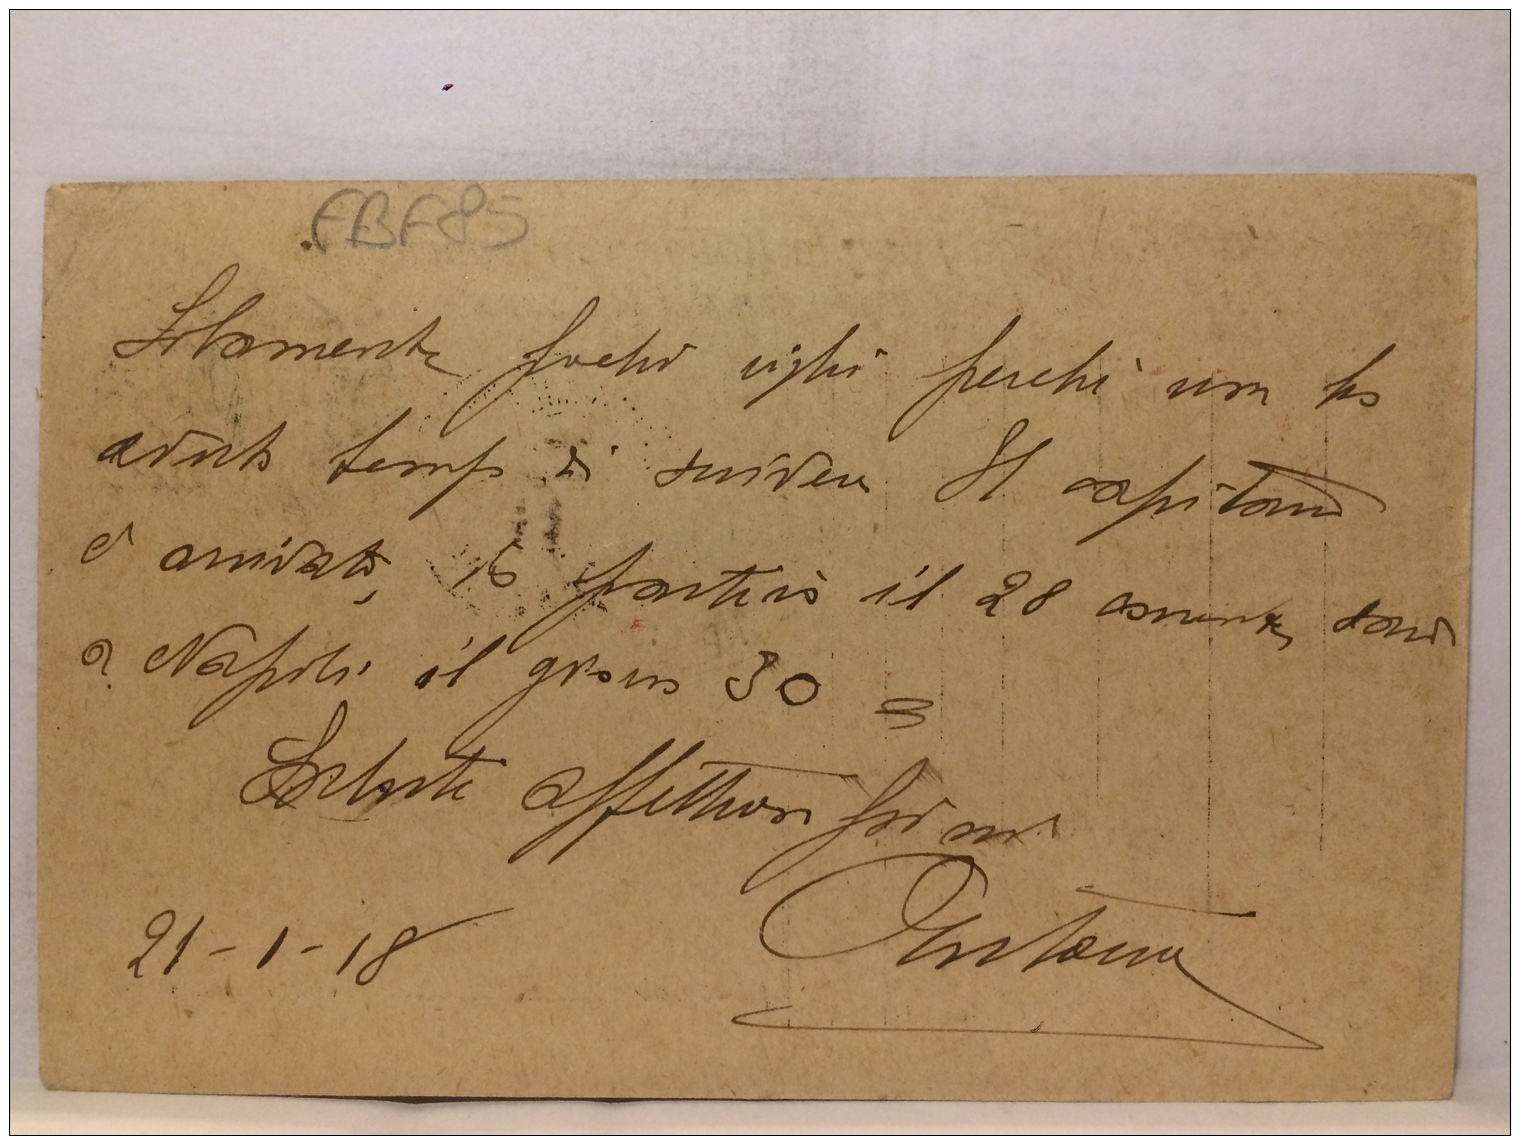 FBF85
Solamente pochi righi perchè non ho
avuto tempo di scrivere Il capitano
è arrivato, io partirò il 28 corrente, sarò
a Napoli il giorno 30
Saluti affettuosissimi
Antonio
21-1-18